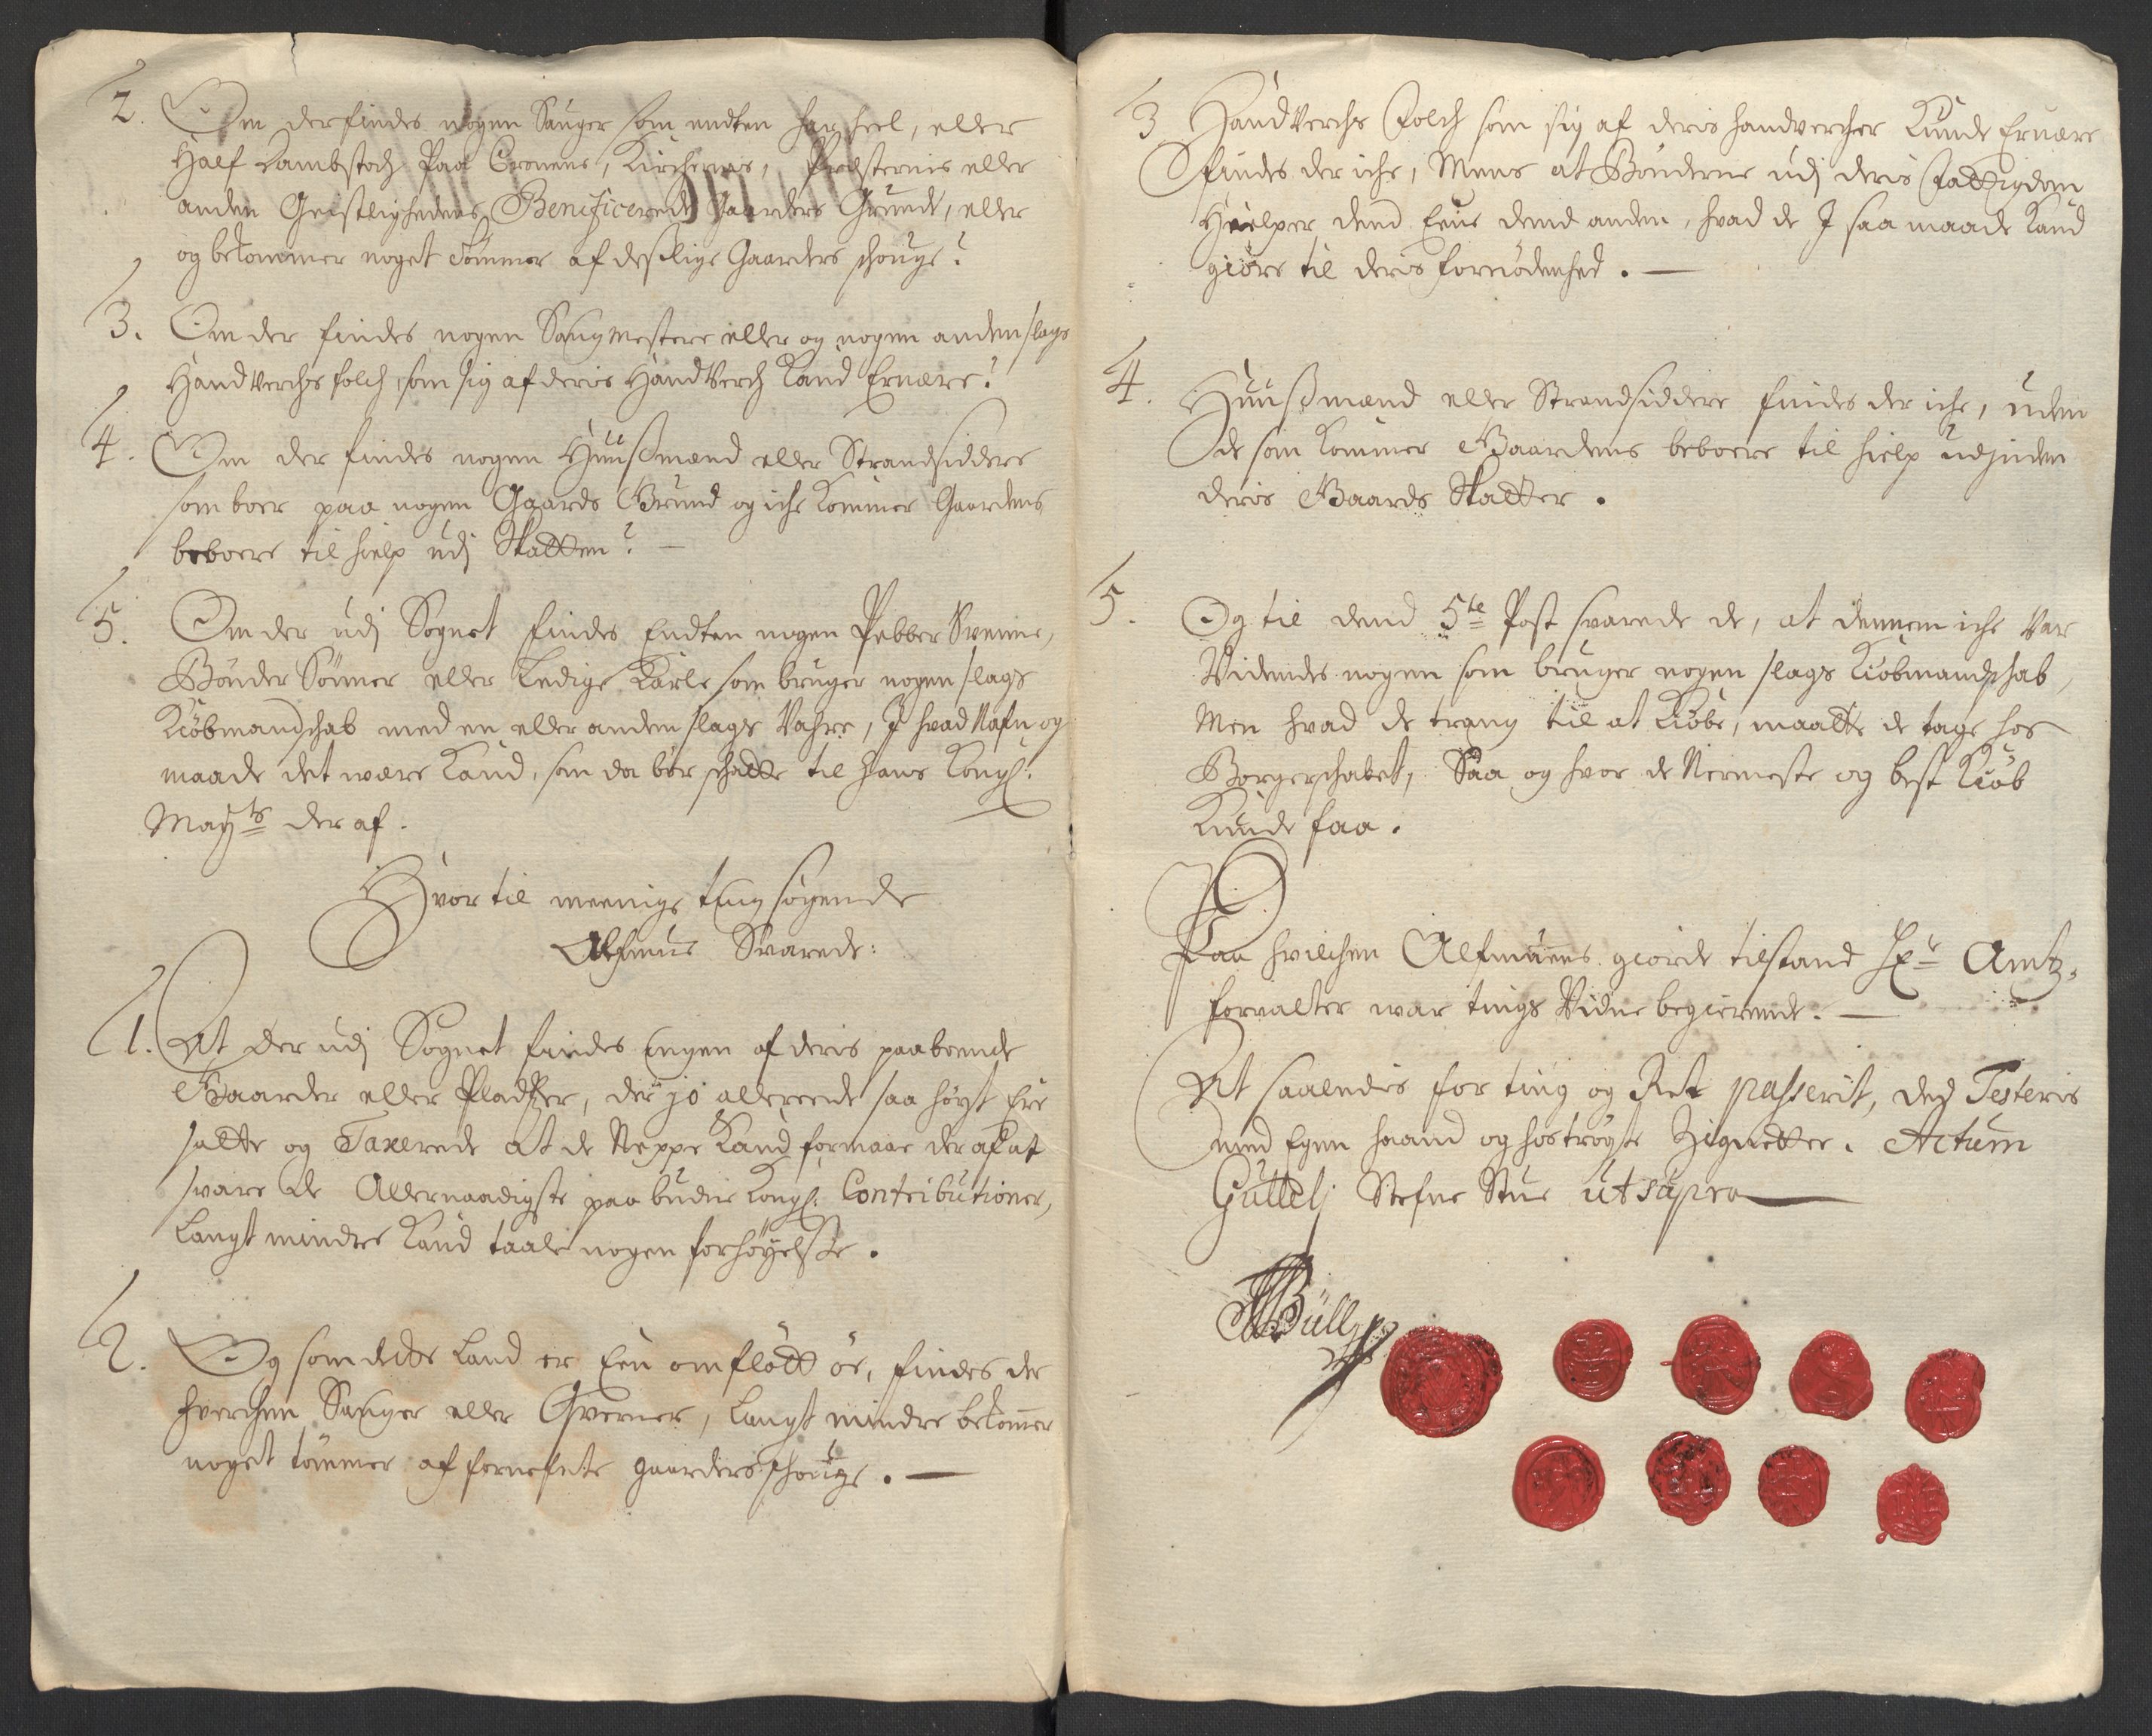 2. Om der findes nogen Sauger som endten har heel, eller
Half Kambstoch Paa Cronens, Kirchernes, Præsternis eller
anden Geistlighedens Beneficerede Gaarders Grunde, eller
og bekommer noget Tømmer af deslige Gaarders schouge?
3. Om der findes nogen Saugmestere eller og nogen anden slags
Handverchs folch, som sig af deris Handverch Kand Ernære?
4. Om der findes nogen Huusmænd eller Strandsiddere
som boer paa nogen Gaards Grund og iche kommer Gaardens
beboere til hielp udj Skatten?
5. Om der udj Sognet findes Endten nogen Pebber Svenne,
Bønder Sønner eller Ledige Karle som bruger nogen slags
Kiøbmandschab med en eller anden slags Vahre, J hvad Nafn og
maade det være Kand, som da bør schatte til Hans Kongl.
Maytz der af.
Hvor til meenige ting søgende
Alfmue Svarede:
1. At der udj Sognet findes Engen af deris paaboende
Gaarder eller Pladtzer, der jo allereede saa høyt Ere
satte og Taxerede at de Neppe Kand formaae der af at
svare de Allernaadigste paabudne Kongl. Contributioner,
Langt mindre Kand taale nogen forhøyelsse.
2. Og som dette Land er Een omflødt øe, findes der
hverchen Sauger eller Qverner, Langt mindre bekommer
noget tømmer af fornefnte gaarders schouge.
3 Handverchs Folch som sig af deris handvercher Kunde Ernære
findes der iche, Mens at Bønderne udj deris Fattigdom
Hielper dend Eene dend anden, hvad de J saa maade Kand
giøre til deris fornødenhed.
4. Huusmænd eller Strandsiddere findes der iche, uden
de som kommer Gaardens beboere til hielp udjnden
deris Gaards Skatter.
5. Og til dend 5te Post svarede de, at dennem iche var
Vidende nogen som bruger nogen slags Kiøbmandschab,
Men hvad de trang til at Kiøbe, maatte de tage hos
Borgerschabet, Saa og hvor de Nermeste og best Kiøb
Kunde faae.
Paa hvilchen Alfmuens giorde tilstand Hr Amtz-
forvalter var tings Vidne begierende.
At saaledis for ting og Ret passerit, des Testeris
med Egen haand og hostrøgte Zignetter. Actum
Stefne Stue ut supra
Büll